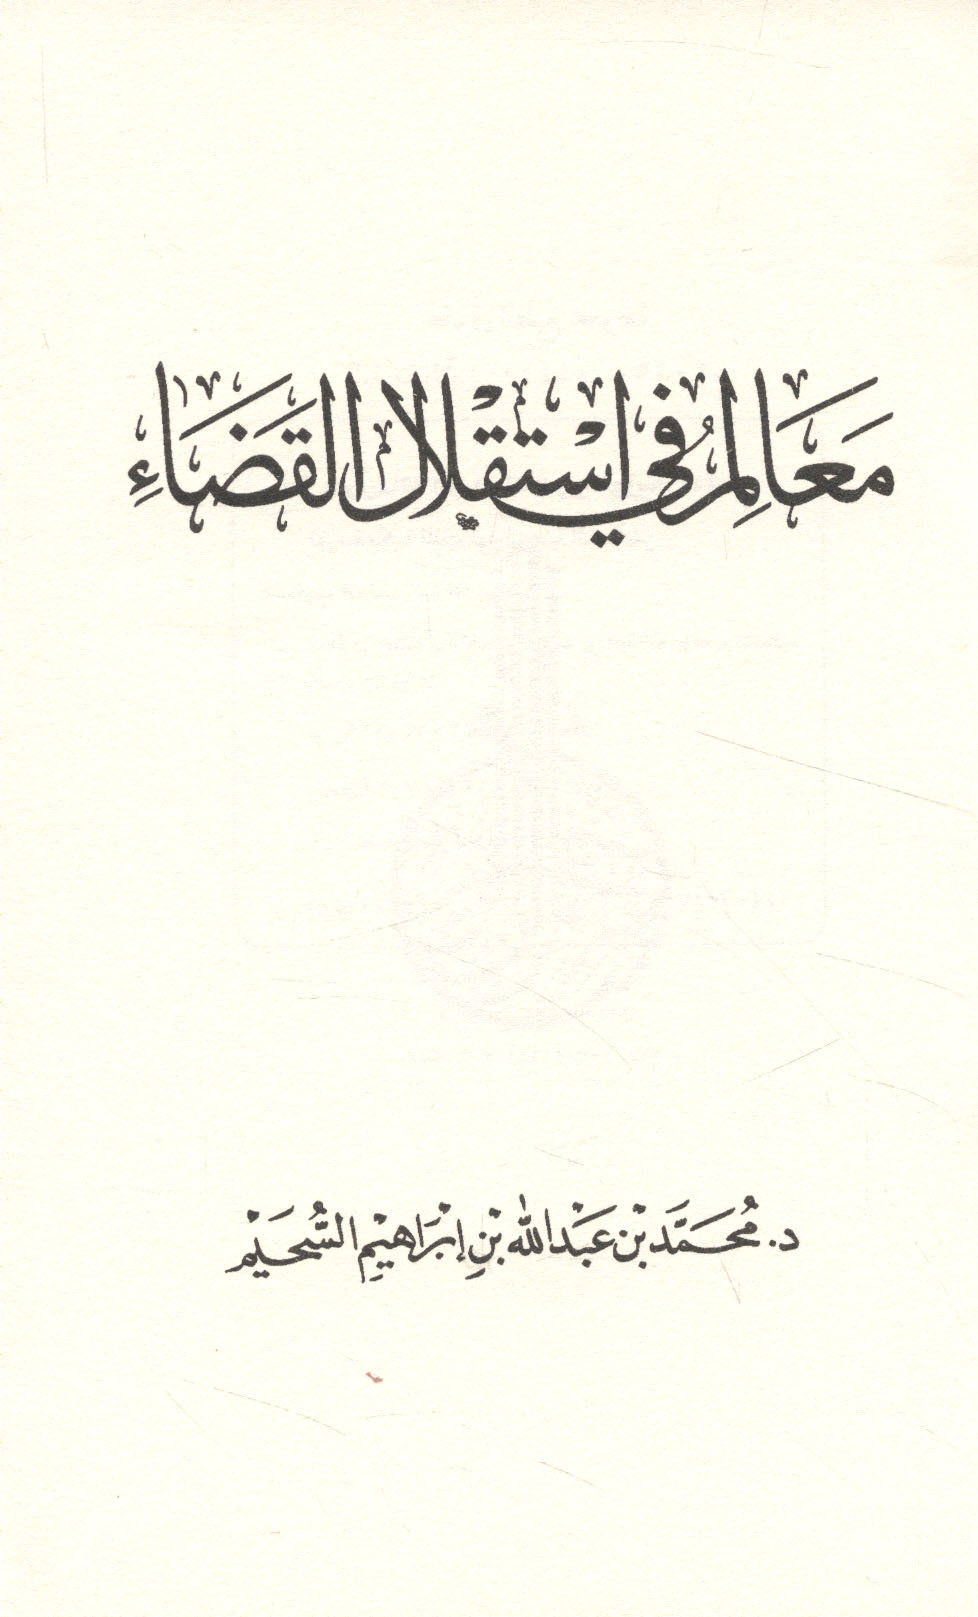 مَعَالِمُ فِي اسْتِقْلَالِ القَضَاءِ
د. مُحَمَّد بْن عَبْد الله بْنِ إبْرَاهِيْمِ السُّحَيْم